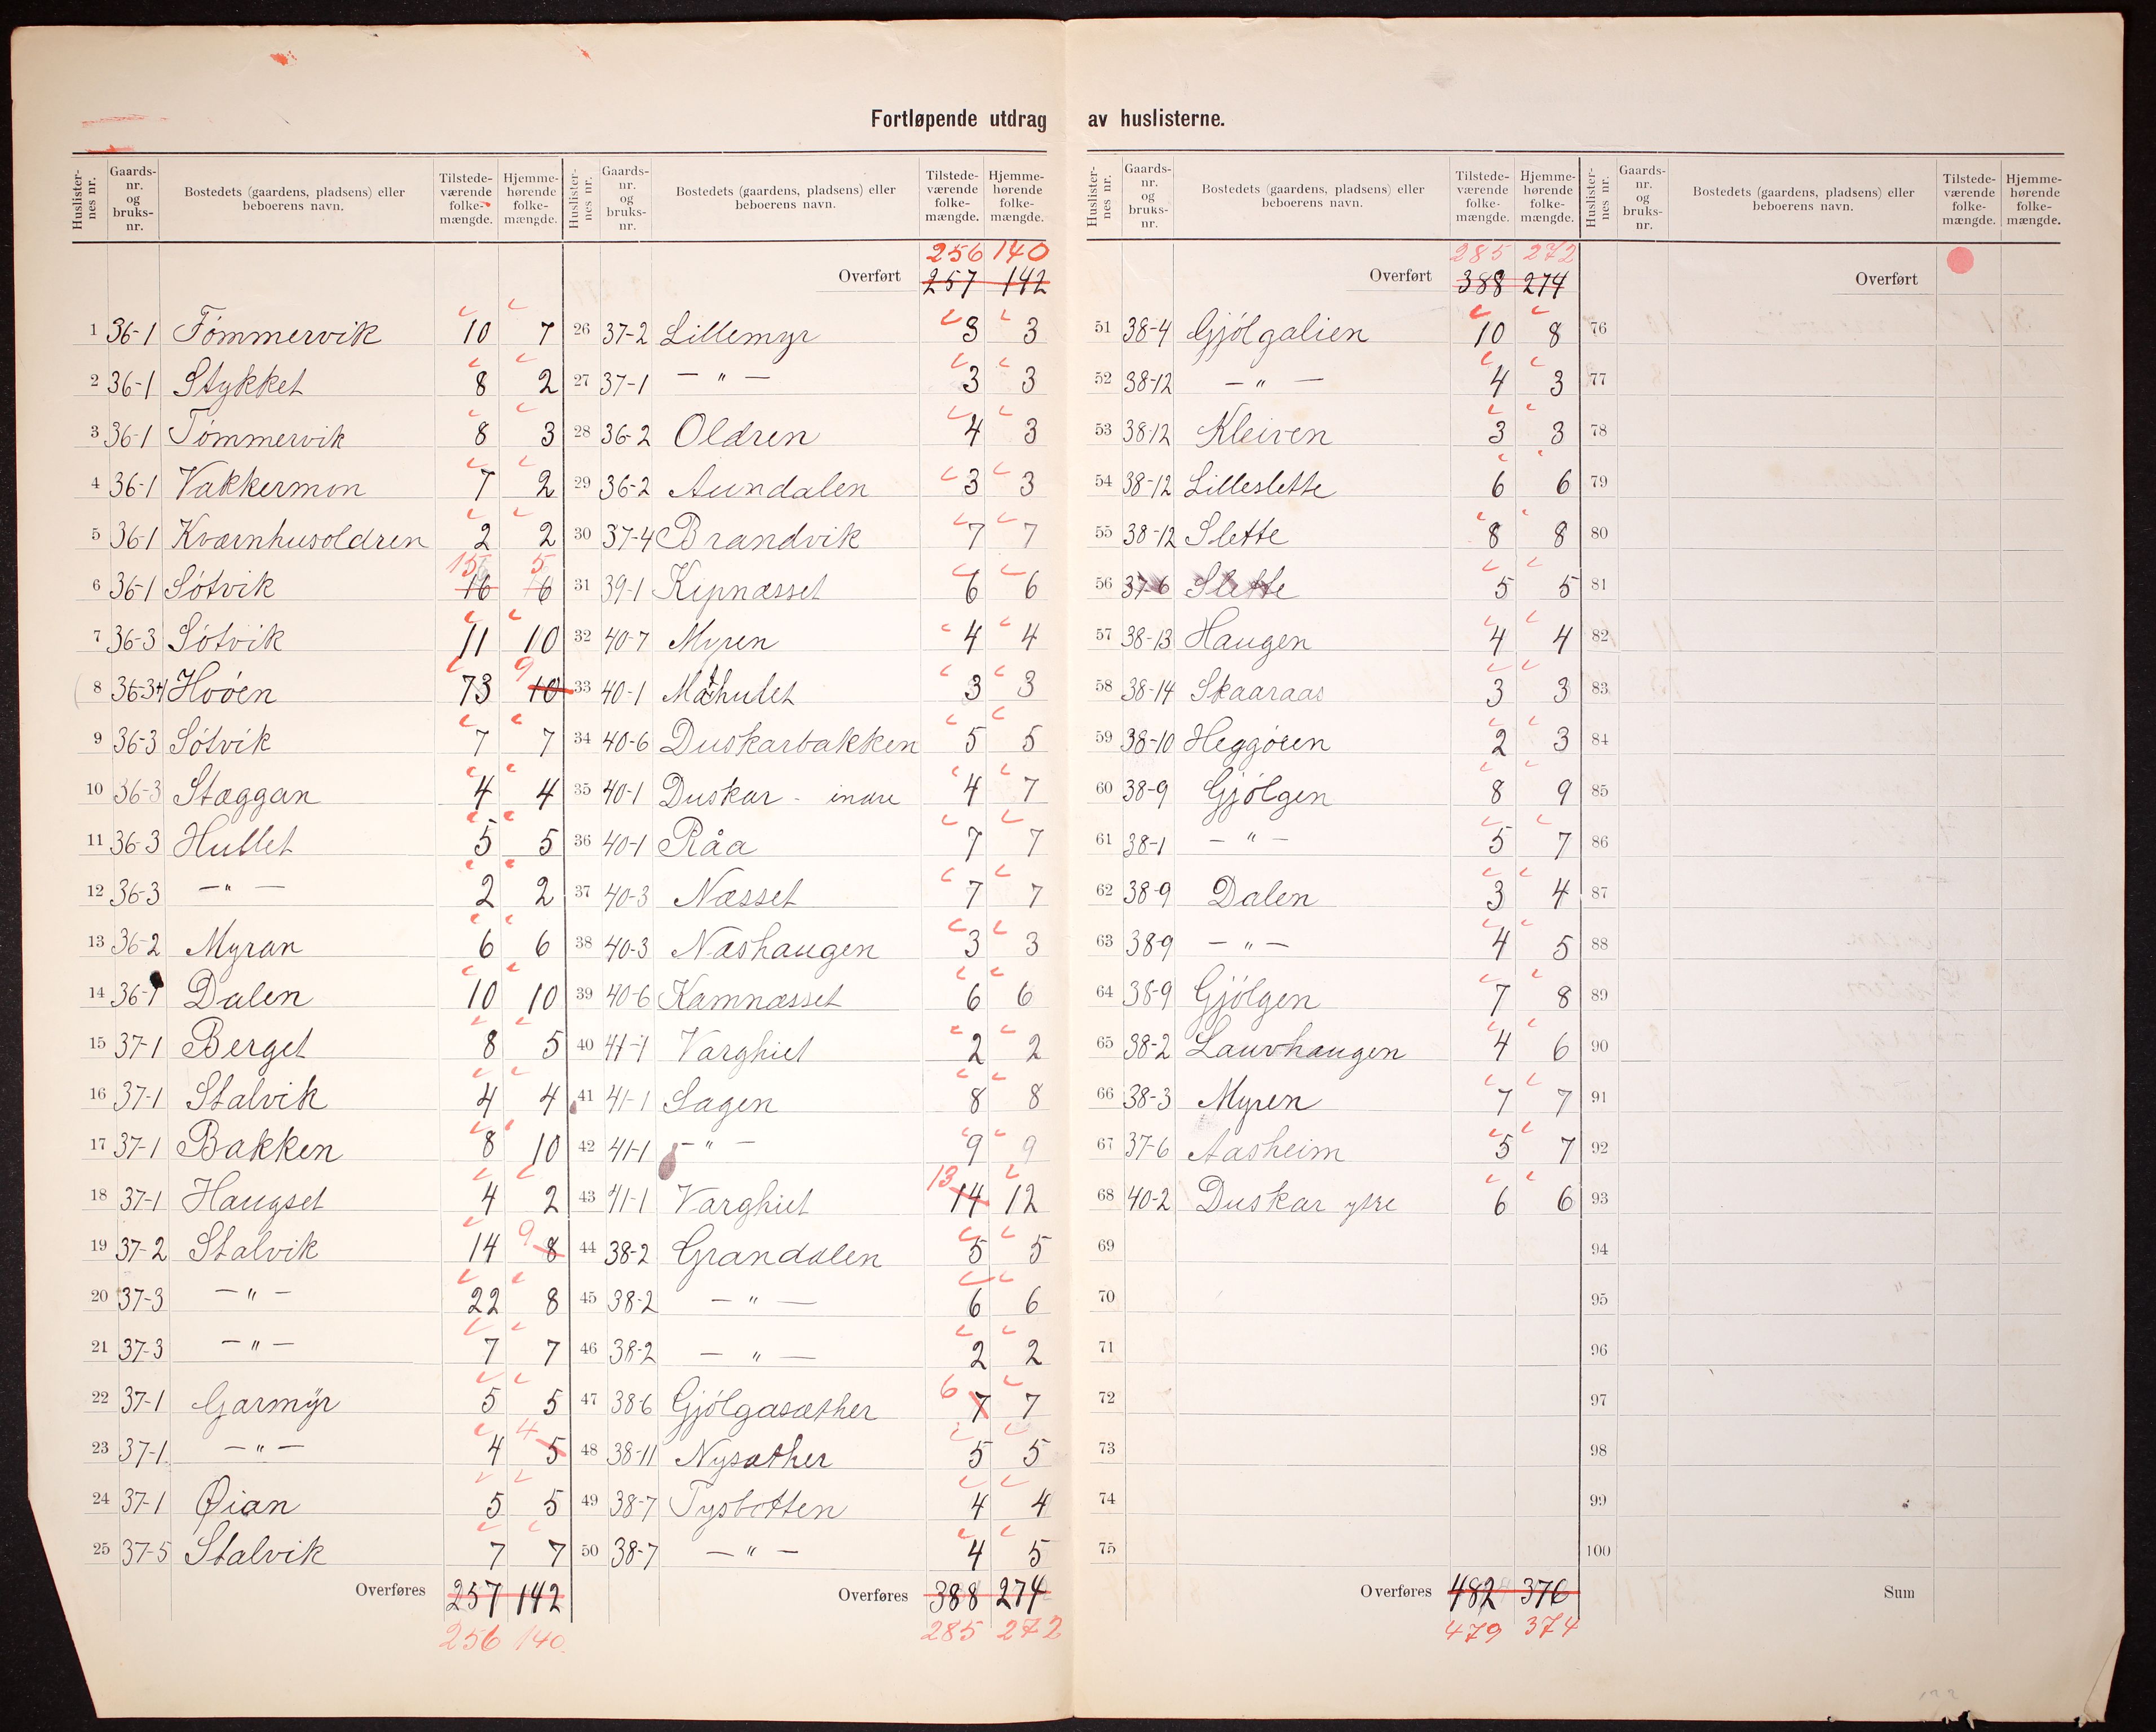 Fortløpende utdrag av huslisterne.
Huslisternes nr. Gaards-nr. og bruks-nr. Bostedets (gaardens, pladsens) eller beboerens navn. Tilstedeværende folkemængde. Hjemmehørende folkemængde.
1 36-1 Tömmervik 10 7
2 36-1 Stykket 8 2
3 36-1 Tömmervik 8 3
4 36-1 Vakkermon 7 2
5 36-1 Kværnhusoldren 2 2
15 5
6 36-1 Sötvik 16 6
7 36-3 Sötvik 11 10
9
8 36-34 Hvöen 73 10
9 36-3 Sötvik 7 7
10 36-3 Stæggan 4 4
11 36-3 Hullet 5 5
12 36-3 — " — 2 2
13 36-2 Myran 6 6
14 36-1 Dalen 10 10
15 37-1 Berget 8 5
16 37-1 Stalvik 4 4
17 37-1 Bakken 8 10
18 37-1 Haugset 4 2
19 37-2 Stalvik 14 9 8
20 37-3 — " — 22 8
21 37-3 — " — 7 7
22 37-1 Garmyr 5 5
23 37-1 — " — 4 4 5
24 37-1 Øian 5 5
25 37-5 Stalvik 7 7
Overføres 257 142
256 140
Huslisternes nr. Gaards-nr. og bruks-nr. Bostedets (gaardens, pladsens) eller beboerens navn. Tilstedeværende folkemængde. Hjemmehørende folkemængde.
256 140
Overført 257 142
26 37-2 Lillemyr 3 3
27 37-1 — " — 3 3
28 36-2 Oldren 4 3
29 36-2 Aundalen 3 3
30 37-4 Brandvik 7 7
31 39-1 Kipnæsset 6 6
32 40-7 Myren 4 4
33 40-1 3 3
34 40-6 Duskarbakken 5 5
35 40-1 Duskar - indre 4 7
36 40-1 Råa 7 7
37 40-3 Næsset 7 7
38 40-3 Næshaugen 3 3
39 40-6 Kamnæsset 6 6
40 41-1 Varghiet 2 2
41 41-1 Sagen 8 8
42 41-1 — " — 9 9
43 41-1 Varghiet 13 14 12
44 38-2 Grandalen 5 5
45 38-2 — " — 6 6
46 38-2 — " — 2 2
47 38-6 Gjölgasæther 6 7 7
48 38-11 Nysæther 5 5
49 38-7 Tysbotten 4 4
50 38-7 — " — 4 5
Overføres 388 274
285 272
Huslisternes nr. Gaards-nr. og bruks-nr. Bostedets (gaardens, pladsens) eller beboerens navn. Tilstedeværende folkemængde. Hjemmehørende folkemængde.
285 272
Overført 388 274
51 38-4 Gjölgalien 10 8
52 38-12 — " — 4 3
53 38-12 Kleiven 3 3
54 38-12 Lilleslette 6 6
55 38-12 Slette 8 8
56 37-6 Slette 5 5
57 38-13 Haugen 4 4
58 38-14 Skaaraas 3 3
59 38-10 Heggöien 2 3
60 38-9 Gjölgen 8 9
61 38-1 — " — 5 7
62 38-9 Dalen 3 4
63 38-9 — " — 4 5
64 38-9 Gjölgen 7 8
65 38-2 Lauvhaugen 4 6
66 38-3 Myren 7 7
67 37-6 Aasheim 5 7
68 40-2 Duskar ytre 6 6
69
70
71
72
73
74
75
Overføres 482 376
479 374
Huslisternes nr. Gaards-nr. og bruks-nr. Bostedets (gaardens, pladsens) eller beboerens navn. Tilstedeværende folkemængde. Hjemmehørende folkemængde.
Overført
76
77
78
79
80
81
82
83
84
85
86
87
88
89
90
91
92
93
94
95
96
97
98
99
100
Sum